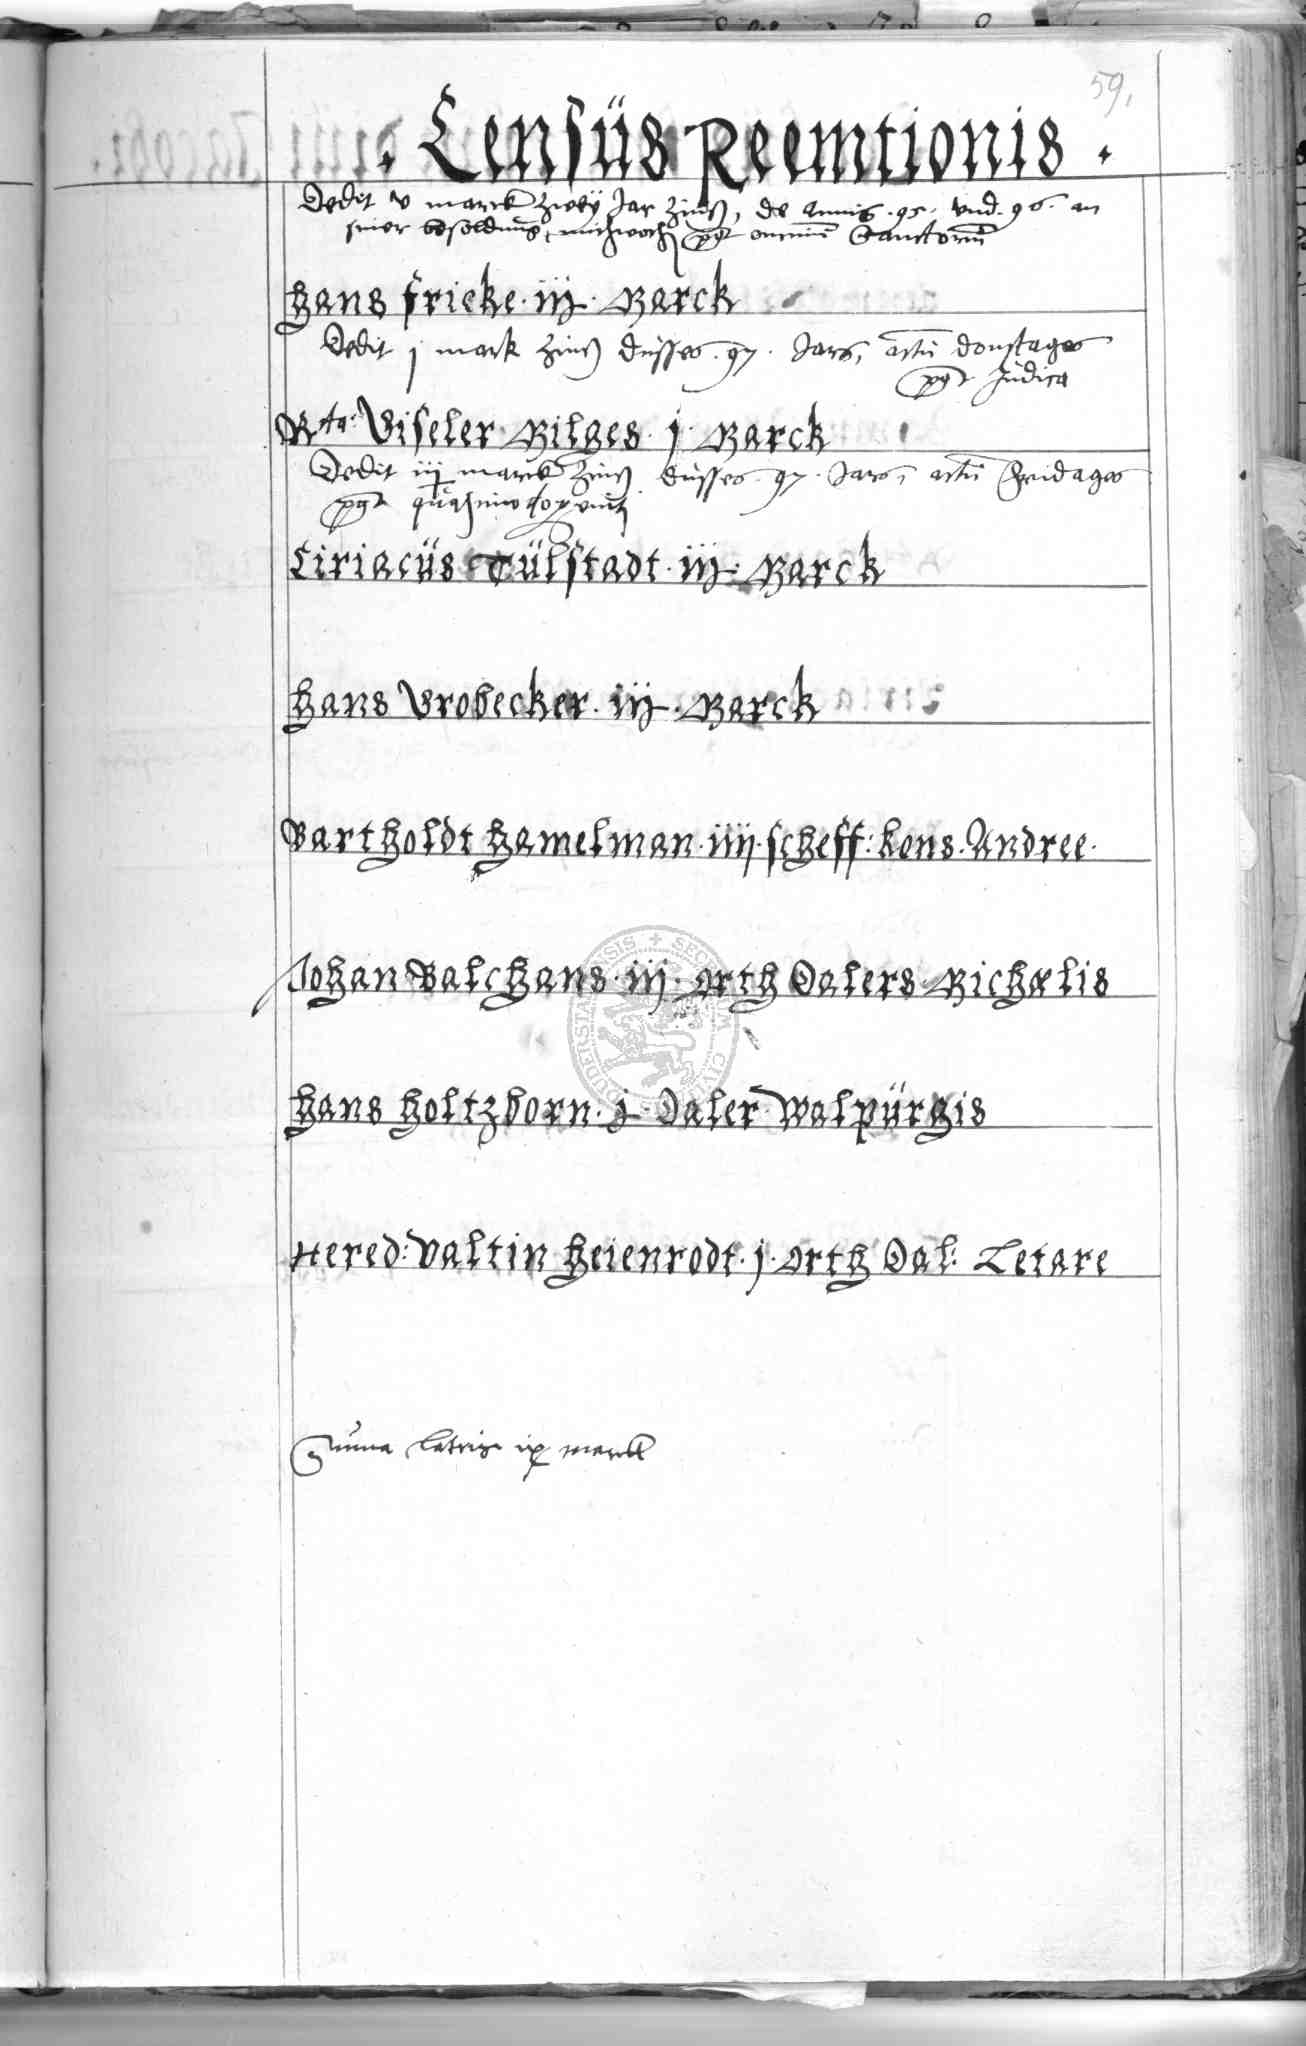 59.
. Censüs Reemtionis .
Dedit v marck zwey Jar zinß, de Annis .95. vnd .96. an
siner besoldung, mitwoch pt omniū Sanctorū
Hans Fricke . iij . Marck
Dedit j mark zinß düsses .97. Jars, actū donstages
pt Judica
Rta: Viseler Hilges . j . Marck
Dedit iij marck zinß düsses .97. Jars, actū Fridages
pt quasimo
Ciriacüs Tülstadt . iij . Marck
Hans Vrobecker . iij . Marck
Bartholdt Hamelman . iiij . scheff: kons . Andree .
Johan Balchans . iij . Orth Dalers Michaelis
Hans Holtzborn . j . Daler Walpürgis
Hered: Valtin Heienrodt . j . Orth Dal: Letare
Suma lateris ix marck